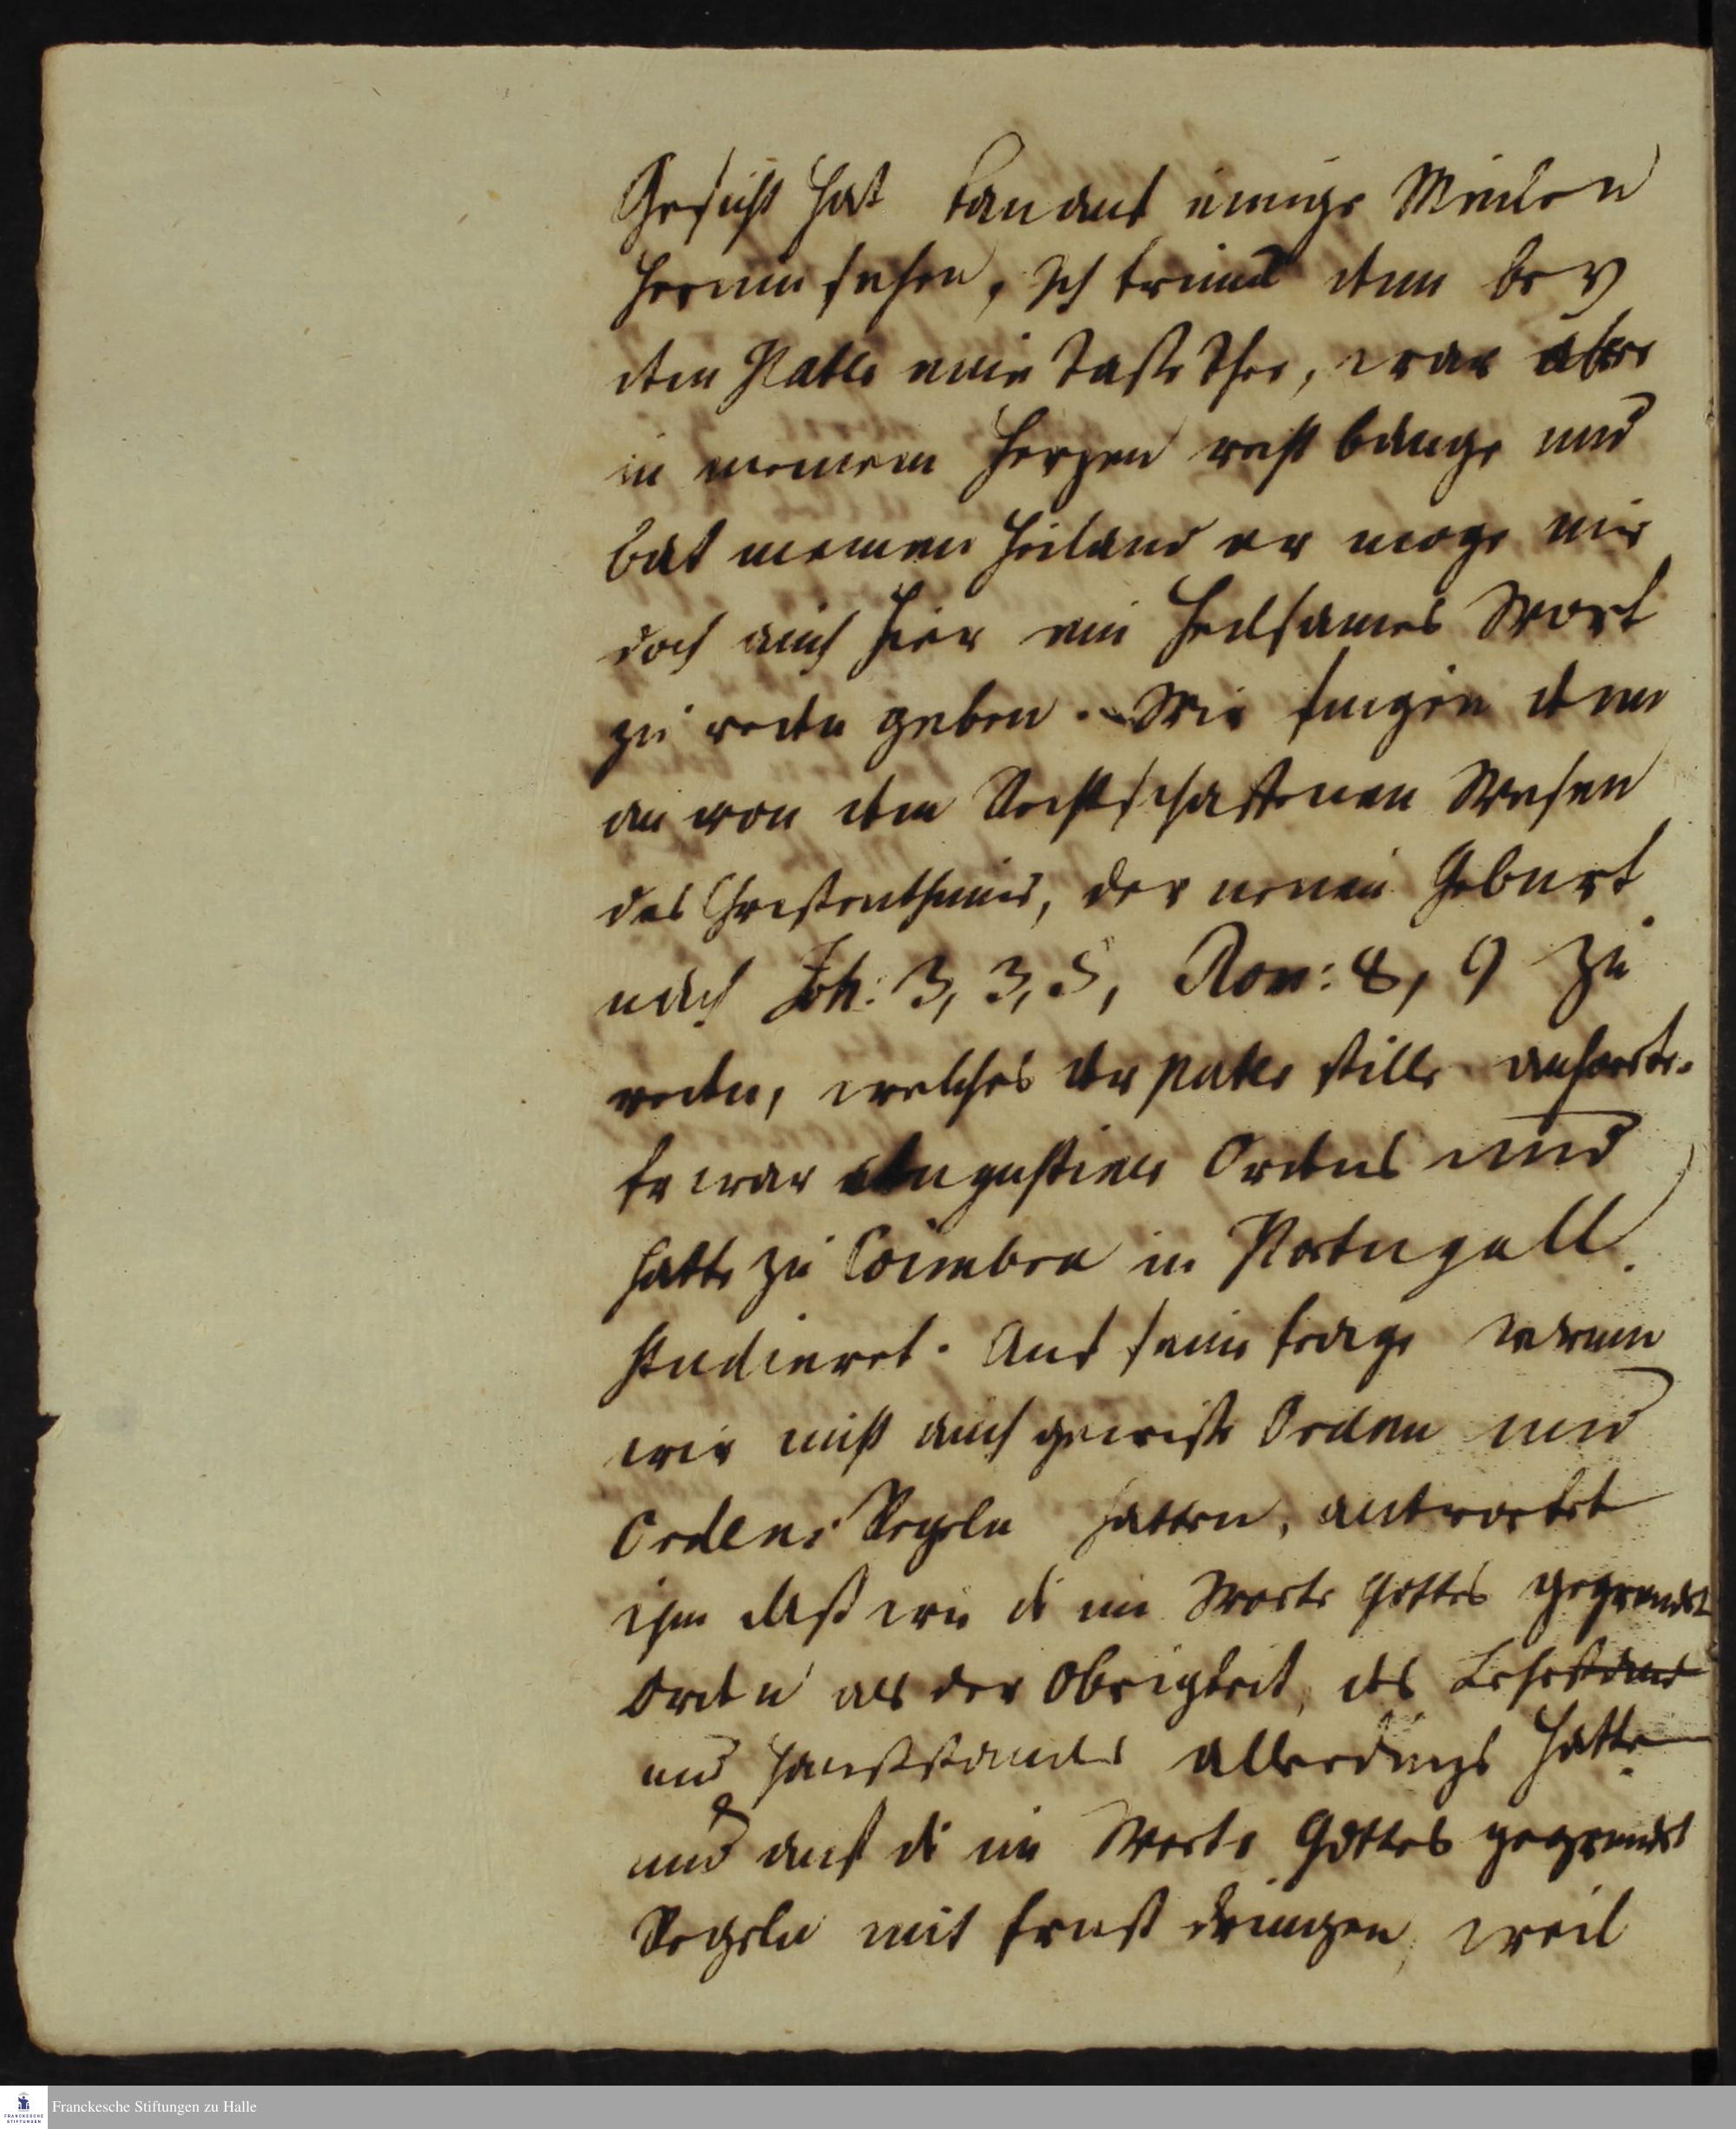 Gesicht hat kan auf einige Meilen
herum sehen, Ich trinck denn bey
dem Pater eine Tasse Thee, war aber
in meinem Herzen recht bange und
bat meinen Heiland er moge mir
doch auch hier ein heilsames Wort
zu reden geben. Wir fingen denn
an von dem Rechtschaffenen Wesen
des Christenthums, der neuen Geburt
nach Joh: 3, 3, 5, Rom: 8, 9 zu
reden, welches der Pater stille anhorte.
Er war Augustiner Ordens und
hatte zu Coimbra in Portugall
studieret. Auf seine frage warum
wir nicht auch gewisse Orden und
Ordens Regeln hatten, antwortet
ihm daß wir di im Worte Gottes gegrundet
Orden als der Obrigkeit, des Lehrstand
und Haußstandes allerdings hatte
und auf di im Worte Gottes gegrundet
Regeln mit Ernst dringen, weil
Franckesche Stiftungen zu Halle